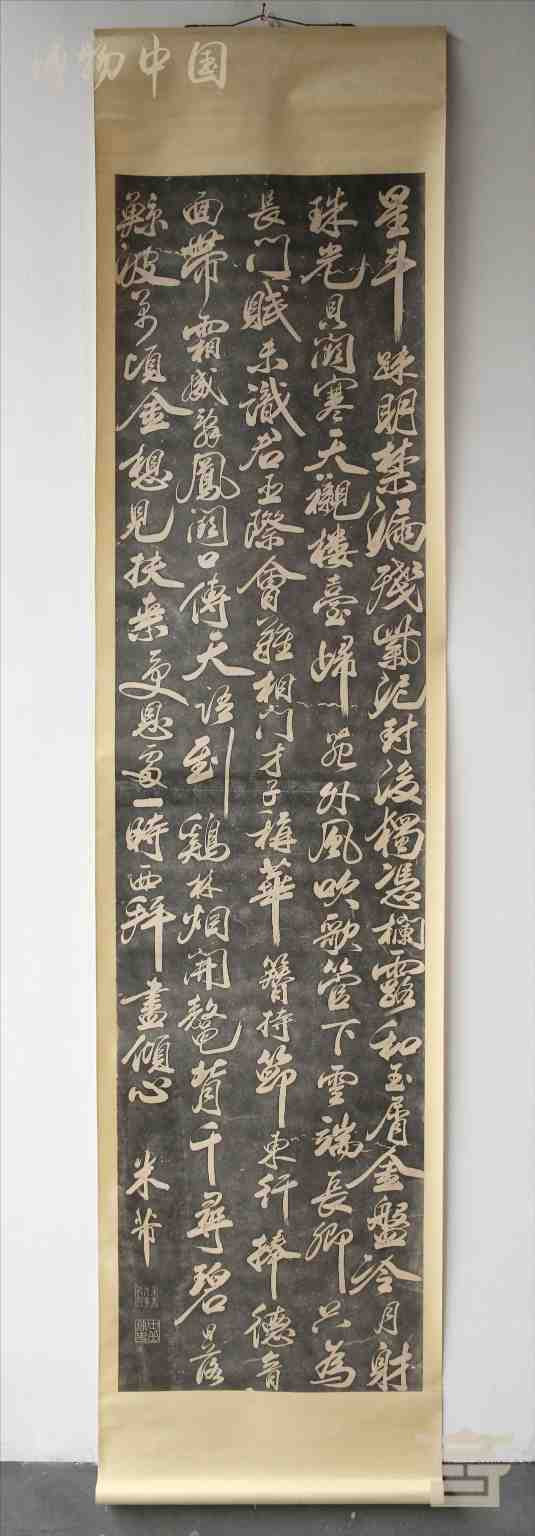 博物中国
星斗踈明禁漏殘紫泥封後獨憑欄露和玉屑金盤冷月射
珠光貝闕寒天襯樓臺歸苑外風吹歌管下雲端長卿只為
長門賦未識君王際會難相門才子稱華簪持節東行捧德音
面帶霜威辭鳳闕口傳天語到鷄林烟開鼇背千尋碧日落
鯨波萬頃金想見扶桒受恩處一時西拜盡傾心
米芾